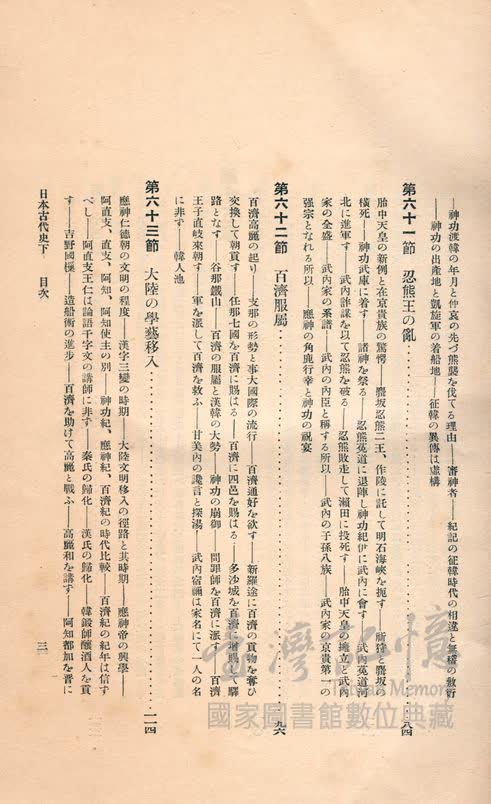 ——神功渡韓の年月と仲哀の先づ熊襲を伐てる理由——審神者——紀記の征韓時代の相違と無稽の敷衍
——神功の出產地と凱旋軍の着船地——征韓の異傳は虛構
第六十一節 忍熊王の亂 八四
胎中天皇の新例と在京貴族の驚愕——麛坂忍熊二王、作陵に託して明石海峽を扼す——祈狩と麛坂の
橫死——神功武庫に着す——諸神を祭る——忍熊菟道に退陣し神功紀伊に武內に會す——武內菟道河
北に進軍す——武內詐謀を以て忍熊を破る——忍熊敗走して瀨田に投死す——胎中天皇の擁立と武內
家の全盛——武內家の系譜——武內の內臣と稱する所以——武內の子孫八族——武內家の在京貴第一の
强宗となれる所以——應神の角鹿行幸と神功の祝宴
第六十二節 百濟服屬 九六
百濟高麗の起り——支那の形勢と事大國際の流行——百濟通好を欲す——新羅途に百濟の貢物を奪ひ
交換して朝貢す——任那七國を百濟に賜はる——百濟に四邑を賜はる——多沙城を百濟に增賜し驛
路となす——谷那鐵山——百濟の服屬と漢韓の大勢——神功の崩御——問罪師を百濟に派す——百濟
王子直岐來朝す——軍を派して百濟を救ふ——甘美內の讒言と探湯——武內宿禰は家名にて一人の名
に非ず——韓人池
第六十三節 大陸の學藝移入 一一四
應神仁德朝の文明の程度——漢字三變の時期——大陸文明移入の徑路と其時期——應神帝の興學——
阿直支、直支、阿知、阿知使主の別——神功紀、應神紀、百濟紀の時代比較——百濟紀の紀年は信ず
べし——阿直支王仁は論語千字文の講師に非ず——秦氏の歸化——漢氏の歸化——韓鍛師釀酒人を貢
す——吉野國樔——造船術の進步——百濟を助けて高麗と戰ふ——高麗和を講ず——阿知都加を晉に
日本古代史下 目次 三
臺灣記憶
Taiwan Memory
國家圖書館數位典藏